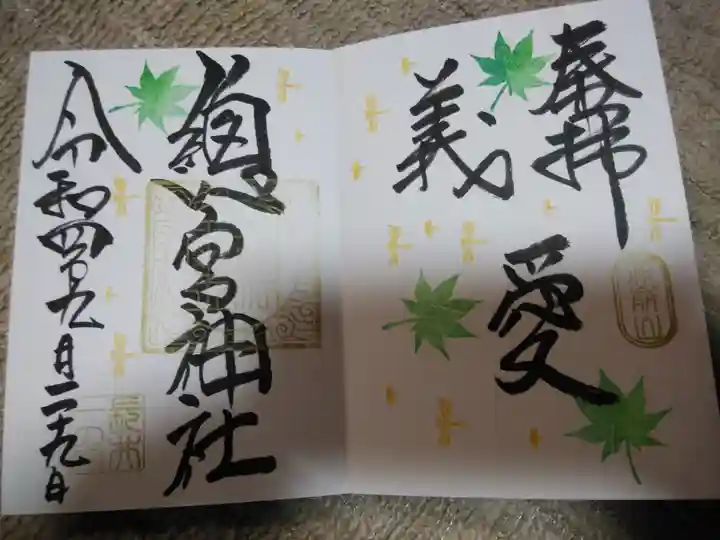 奉拝
愛
義
總宮神社
令和四年九月二十九日